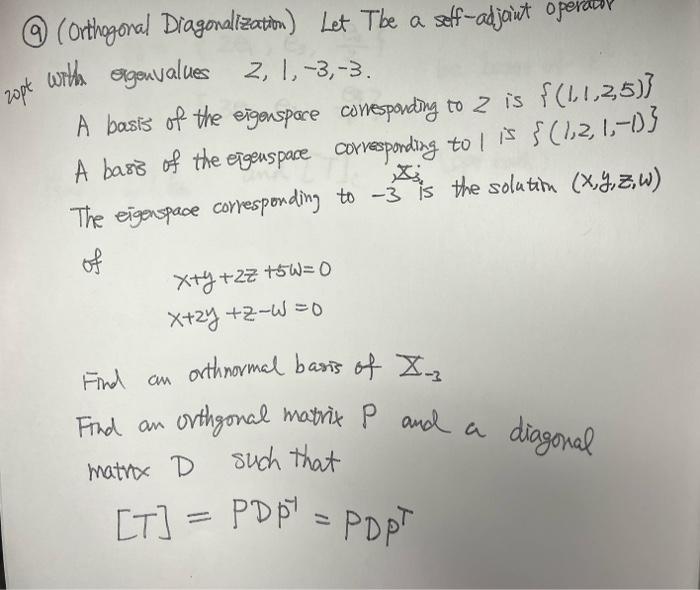 ⑨ (Orthogonal Diagonalization) Let T be a self-adjoint operator
20pt with eigenvalues 2, 1, -3, -3.
A basis of the eigenspace corresponding to 2 is {(1,1,2,5)}
A basis of the eigenspace corresponding to 1 is {(1,2,1,-1)}
The eigenspace corresponding to -3 , X-3, is the solution (x,y,z,w)
of
x+y+2z+5w=0
x+2y+z-w=0
Find an orthnormal basis of X-3
Find an orthgonal matrix P and a diagonal
matrix D such that
[T] = PDP⁻¹ = PDPᵀ